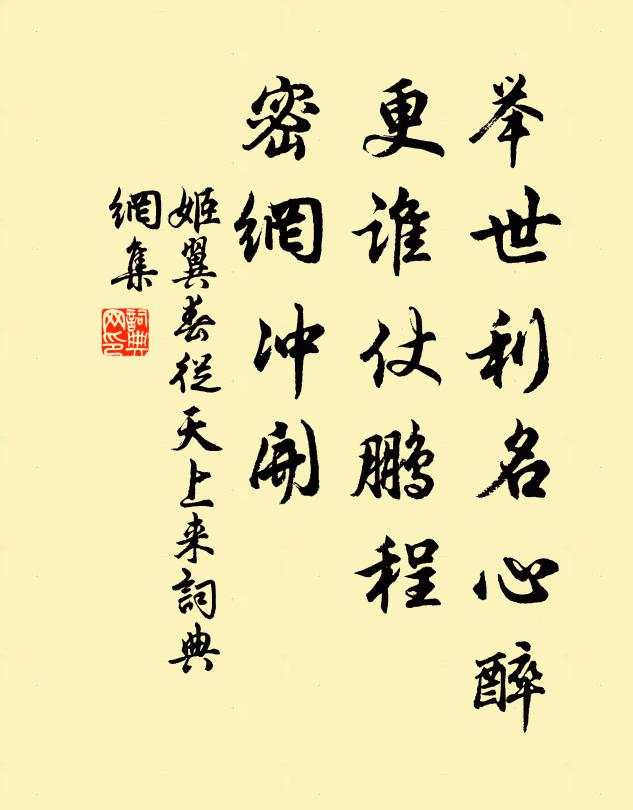 举世利名心醉
更谁仗鹏程
密網冲開
姬翼春從天上来詞典
網集
詞典
网印